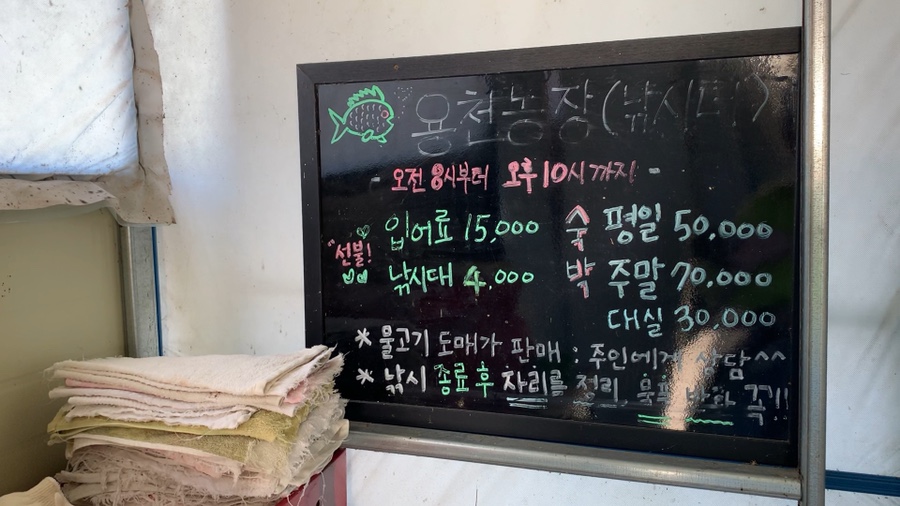 용천농장(낚시터)
- 오전 8시부터 오후 10시까지 -
"선불!
입어료 15,000
낚시대 4,000
숙박
평일 50,000
주말 70,000
대실 30,000
* 물고기 도매가 판매 : 주인에게 상담^^
* 낚시 종료 후 자리를 정리, 꼭!!